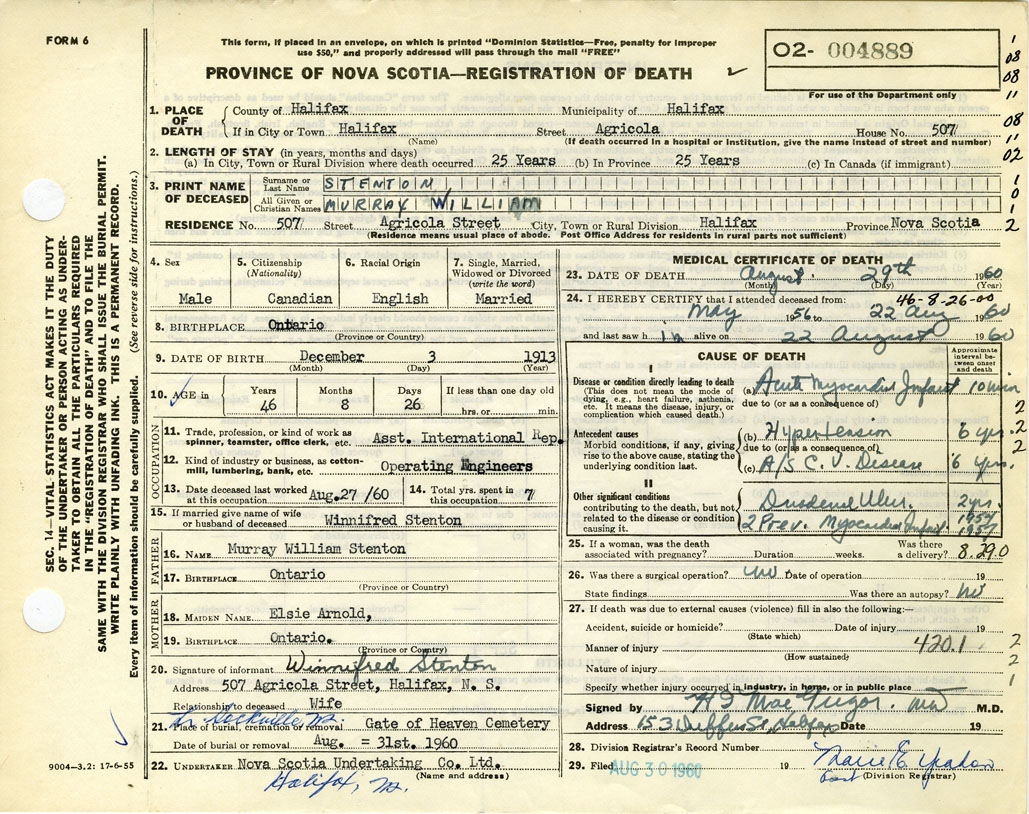 FORM 6
This form, if placed in an envelope, on which is printed "Dominion Statistics—Free, penalty for improper
use $50," and properly addressed will pass through the mail "FREE"
O2- 004889
For use of the Department only
PROVINCE OF NOVA SCOTIA—REGISTRATION OF DEATH
1. PLACE OF DEATH
County of Halifax Municipality of Halifax
If in City or Town Halifax Street Agricola House No. 507
(Name) (If death occurred in a hospital or institution, give the name instead of street and number)
2. LENGTH OF STAY (in years, months and days)
(a) In City, Town or Rural Division where death occurred 25 Years (b) In Province 25 Years (c) In Canada (if immigrant)
3. PRINT NAME OF DECEASED
Surname or Last Name STENTON
All Given or Christian Names MURRAY WILLIAM
RESIDENCE No. 507 Street Agricola Street City, Town or Rural Division Halifax Province Nova Scotia
(Residence means usual place of abode. Post Office Address for residents in rural parts not sufficient)
4. Sex
Male
5. Citizenship
(Nationality)
Canadian
6. Racial Origin
English
7. Single, Married,
Widowed or Divorced
(write the word)
Married
8. BIRTHPLACE Ontario
(Province or Country)
9. DATE OF BIRTH December 3 1913
(Month) (Day) (Year)
10. AGE in
Years Months Days If less than one day old
46 8 26 hrs. or min.
OCCUPATION
11. Trade, profession, or kind of work as
spinner, teamster, office clerk, etc. Asst. International Rep.
12. Kind of industry or business, as cotton-
mill, lumbering, bank, etc. Operating Engineers
13. Date deceased last worked
at this occupation Aug.27 /60
14. Total yrs. spent in
this occupation 7
15. If married give name of wife
or husband of deceased Winnifred Stenton
FATHER
16. NAME Murray William Stenton
17. BIRTHPLACE Ontario
(Province or Country)
MOTHER
18. MAIDEN NAME Elsie Arnold,
19. BIRTHPLACE Ontario.
(Province or Country)
20. Signature of informant Winnifred Stenton
Address 507 Agricola Street, Halifax, N. S.
Relationship to deceased Wife
Sackville, NS.
21. Place of burial, cremation or removal Gate of Heaven Cemetery
Date of burial or removal Aug. = 31st. 1960
22. UNDERTAKER Nova Scotia Undertaking Co. Ltd.
(Name and address)
Halifax, NS.
MEDICAL CERTIFICATE OF DEATH
23. DATE OF DEATH August 29th 1960
(Month) (Day) (Year)
46-8-26-00
24. I HEREBY CERTIFY that I attended deceased from:
May 1956 to 22 Aug 1960
and last saw h im alive on 22 August 1960
CAUSE OF DEATH
Approximate interval between onset and death
I
Disease or condition directly leading to death
(This does not mean the mode of
dying, e.g., heart failure, asthenia,
etc. It means the disease, injury, or
complication which caused death.)
(a) Acute Myocardial Infarct 10 min
due to (or as a consequence of)
Antecedent causes
Morbid conditions, if any, giving
rise to the above cause, stating the
underlying condition last.
(b) Hypertension 6 yrs.
due to (or as a consequence of)
(c) A/S C. V. Disease 6 yrs.
II
Other significant conditions
contributing to the death, but not
related to the disease or condition
causing it.
Duodenal Ulcer. 2 yrs.
2 Prev. Myocardial Infarct 1957
1957
25. If a woman, was the death
associated with pregnancy? Duration weeks. Was there
a delivery? 8.29.0
26. Was there a surgical operation? no Date of operation 19
State findings Was there an autopsy? no
27. If death was due to external causes (violence) fill in also the following:—
Accident, suicide or homicide? Date of injury 19
(State which)
Manner of injury 420.1
(How sustained)
Nature of injury
Specify whether injury occurred in industry, in home, or in public place
Signed by MacGregor. MD M.D.
Address 153 Duffus St., Halifax Date 19
28. Division Registrar's Record Number
29. Filed AUG 30 1960 19
(Division Registrar)
SEC. 14—VITAL STATISTICS ACT MAKES IT THE DUTY
OF THE UNDERTAKER OR PERSON ACTING AS UNDER-
TAKER TO OBTAIN ALL THE PARTICULARS REQUIRED
IN THE "REGISTRATION OF DEATH" AND TO FILE THE
SAME WITH THE DIVISION REGISTRAR WHO SHALL ISSUE THE BURIAL PERMIT.
WRITE PLAINLY WITH UNFADING INK. THIS IS A PERMANENT RECORD.
Every item of information should be carefully supplied. (See reverse side for instructions.)
9004—3.2: 17-6-55
1
08
08
11
08
11
02
1
0
1
2
2
2
2
2
2
1